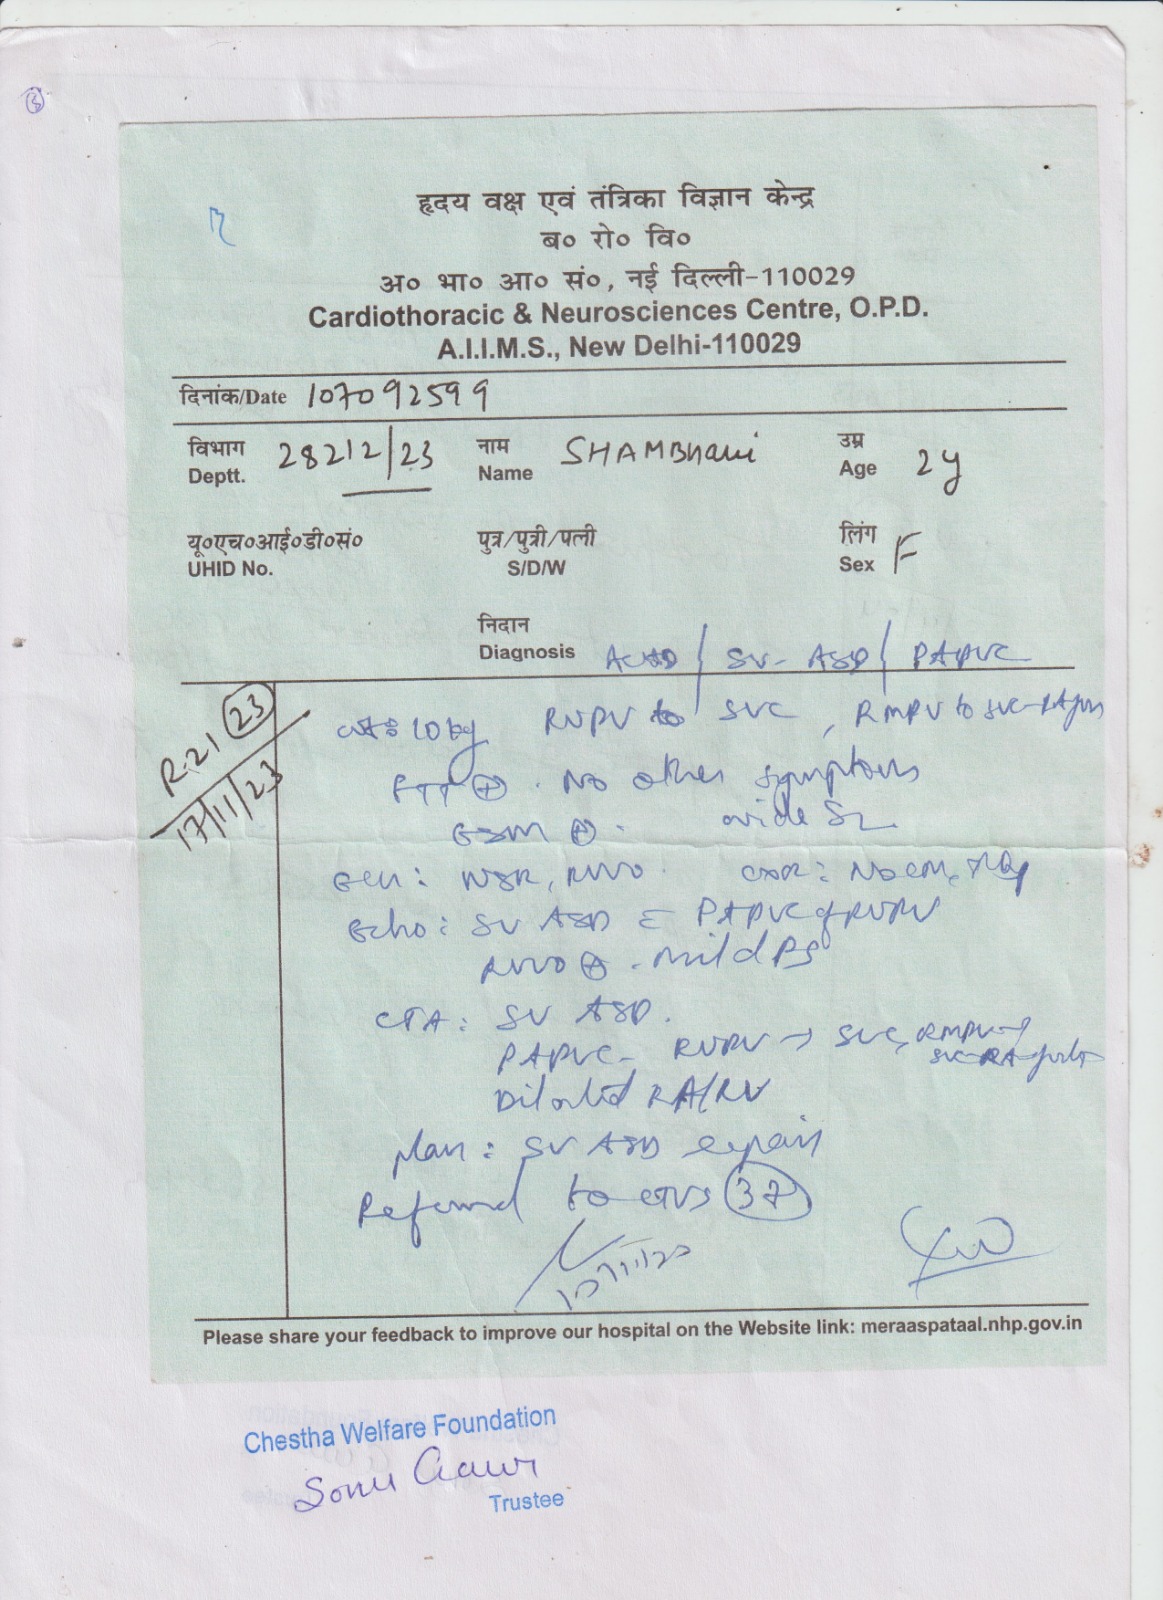 हृदय वक्ष एवं तंत्रिका विज्ञान केन्द्र
ब० रो० वि०
अ० भा० आ० सं०, नई दिल्ली-110029
Cardiothoracic & Neurosciences Centre, O.P.D.
A.I.I.M.S., New Delhi-110029
दिनांक/Date 107092599
विभाग
Deptt. 28212/23
नाम
Name SHAMBHavi
उम्र
Age 2y
यू०एच०आई०डी०सं०
UHID No.
पुत्र/पुत्री/पत्नी
S/D/W
लिंग
Sex F
निदान
Diagnosis ACHD / SV-ASD / PAPVC
R-21 23
17/11/23
wt: 10 kg RUPV to SVC, RMPV to SVC-RA jxn
FTT + . No other symptoms
ESM + . wide S2
ECG: NSR, RVVO CXR: No CM,
Echo: SV ASD c PAPVC of RUPV
RVVO + . mild PS
CTA: SV ASD.
PAPVC- RUPV → SVC, RMPV →
SVC-RA
Dilated RA/RV
plan: SV ASD repair
Referred to CTVS 37
17/11/23
Please share your feedback to improve our hospital on the Website link: meraaspataal.nhp.gov.in
Chestha Welfare Foundation
Sonu Gauri
Trustee